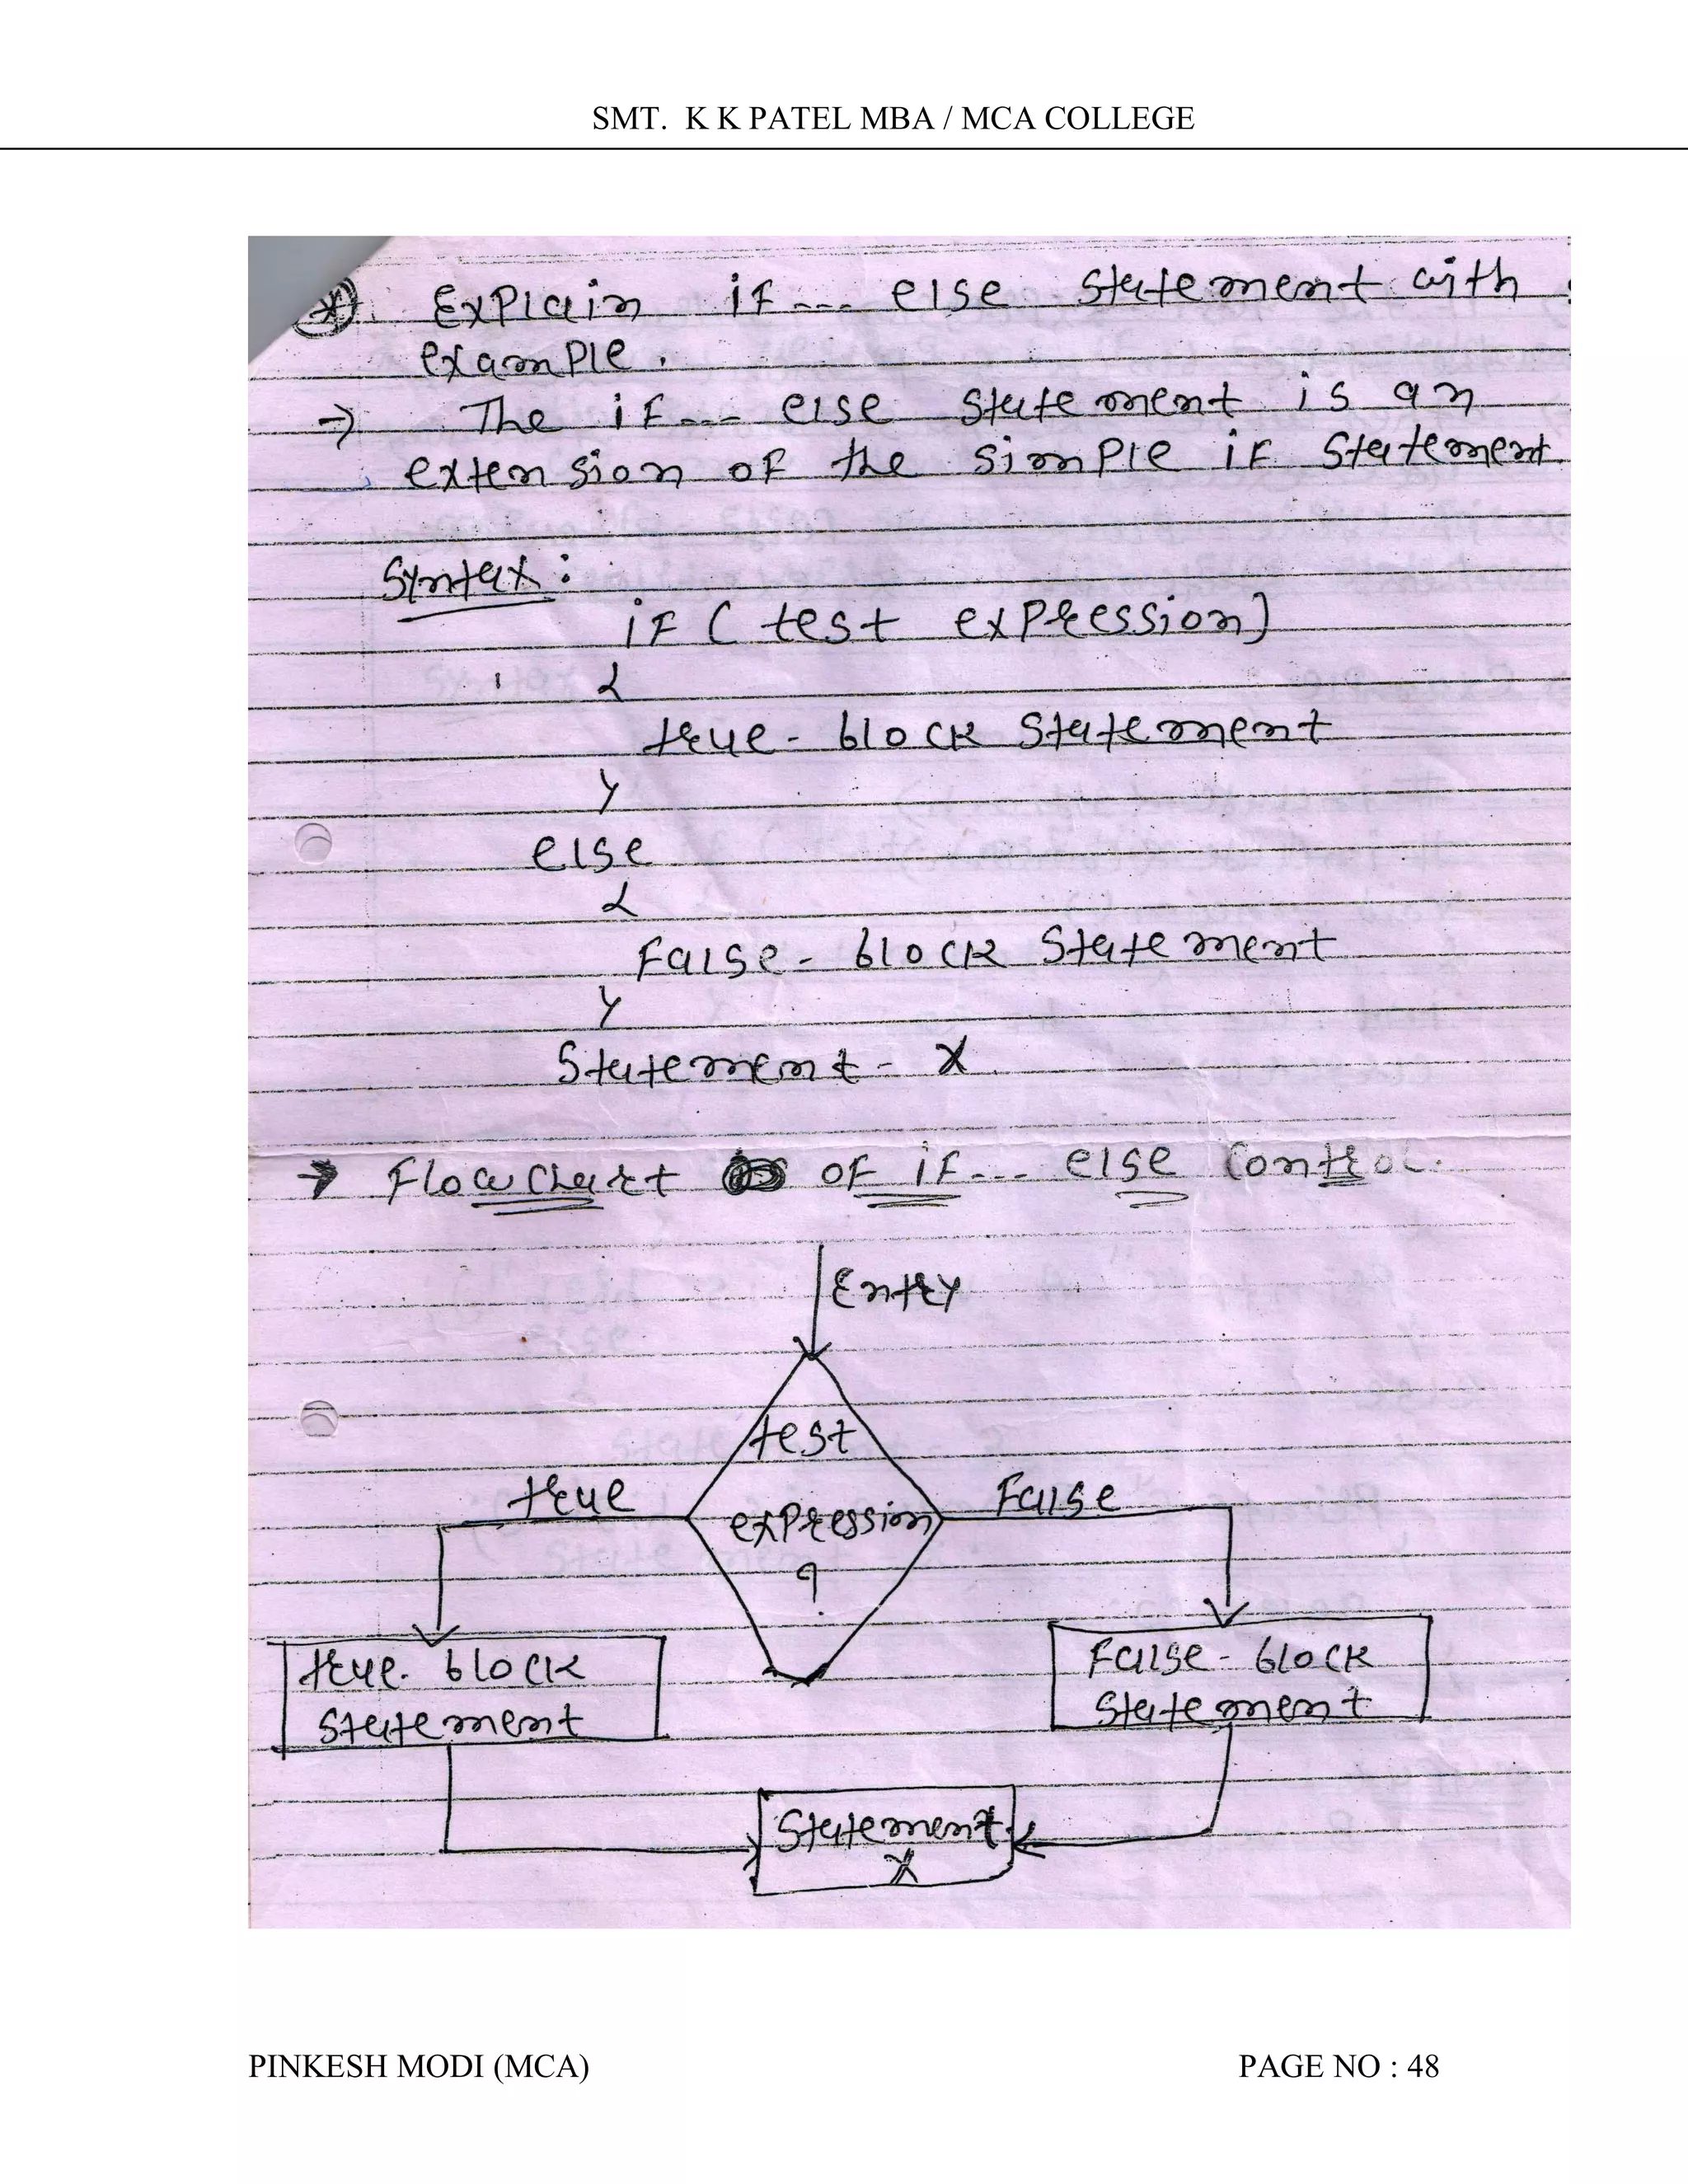 SMT. K K PATEL MBA / MCA COLLEGE
Explain if --- else statement with
example.
→ The if --- else statement is an
extension of the simple if statement
Syntax :
if ( test expression)
{
true - block statement
}
else
{
False - block statement
}
Statement - x
→ Flowchart of if --- else control.
Entry
test
expression
?
true
False
true - block
statement
False - block
statement
Statement
x
PINKESH MODI (MCA)
PAGE NO : 48